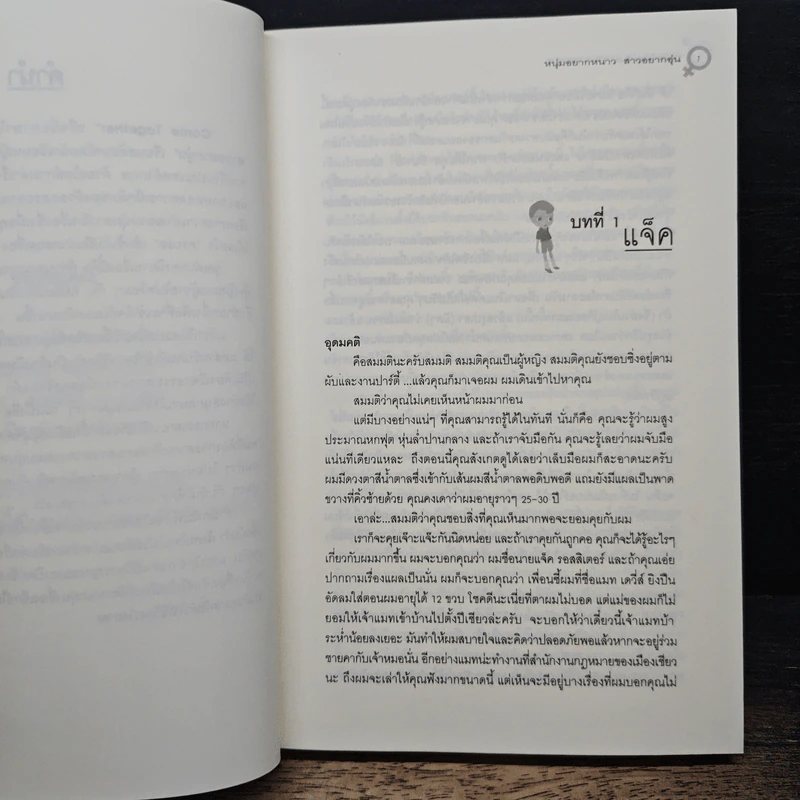 หนุ่มอยากหนาว สาวอยากซุ่น
1
บทที่ 1
แจ็ค
อุดมคติ
คือสมมตินะครับสมมติ สมมติคุณเป็นผู้หญิง สมมติคุณยังชอบซิ่งอยู่ตาม
ผับและงานปาร์ตี้ ...แล้วคุณก็มาเจอผม ผมเดินเข้าไปหาคุณ
สมมติว่าคุณไม่เคยเห็นหน้าผมมาก่อน
แต่มีบางอย่างแน่ๆ ที่คุณสามารถรู้ได้ในทันที นั่นก็คือ คุณจะรู้ว่าผมสูง
ประมาณหกฟุต หุ่นล่ำปานกลาง และถ้าเราจับมือกัน คุณจะรู้เลยว่าผมจับมือ
แน่นทีเดียวแหละ ถึงตอนนี้คุณสังเกตดูได้เลยว่าเล็บมือผมก็สะอาดนะครับ
ผมมีดวงตาสีน้ำตาลซึ่งเข้ากับเส้นผมสีน้ำตาลพอดิบพอดี แถมยังมีแผลเป็นพาด
ขวางที่คิ้วซ้ายด้วย คุณคงเดาว่าผมอายุราวๆ 25-30 ปี
เอาล่ะ...สมมติว่าคุณชอบสิ่งที่คุณเห็นมากพอจะยอมคุยกับผม
เราก็จะคุยเจ๊าะแจ๊ะกันนิดหน่อย และถ้าเราคุยกันถูกคอ คุณก็จะได้รู้อะไรๆ
เกี่ยวกับผมมากขึ้น ผมจะบอกคุณว่า ผมชื่อนายแจ็ค รอสสิเตอร์ และถ้าคุณเอ่ย
ปากถามเรื่องแผลเป็นนั่น ผมก็จะบอกคุณว่า เพื่อนซี้ผมที่ชื่อแมท เดวี่ส์ ยิงปืน
อัดลมใส่ตอนผมอายุได้ 12 ขวบ โชคดีนะเนี่ยที่ตาผมไม่บอด แต่แม่ของผมก็ไม่
ยอมให้เจ้าแมทเข้าบ้านไปตั้งปีเชียวล่ะครับ จะบอกให้ว่าเดี๋ยวนี้เจ้าแมทบ้า
ระห่ำน้อยลงเยอะ มันทำให้ผมสบายใจและคิดว่าปลอดภัยพอแล้วหากจะอยู่ร่วม
ชายคากับเจ้าหมอนั่น อีกอย่างแมทน่ะทำงานที่สำนักงานกฎหมายของเมืองเชียว
นะ ถึงผมจะเล่าให้คุณฟังมากขนาดนี้ แต่เห็นจะมีอยู่บางเรื่องที่ผมบอกคุณไม่